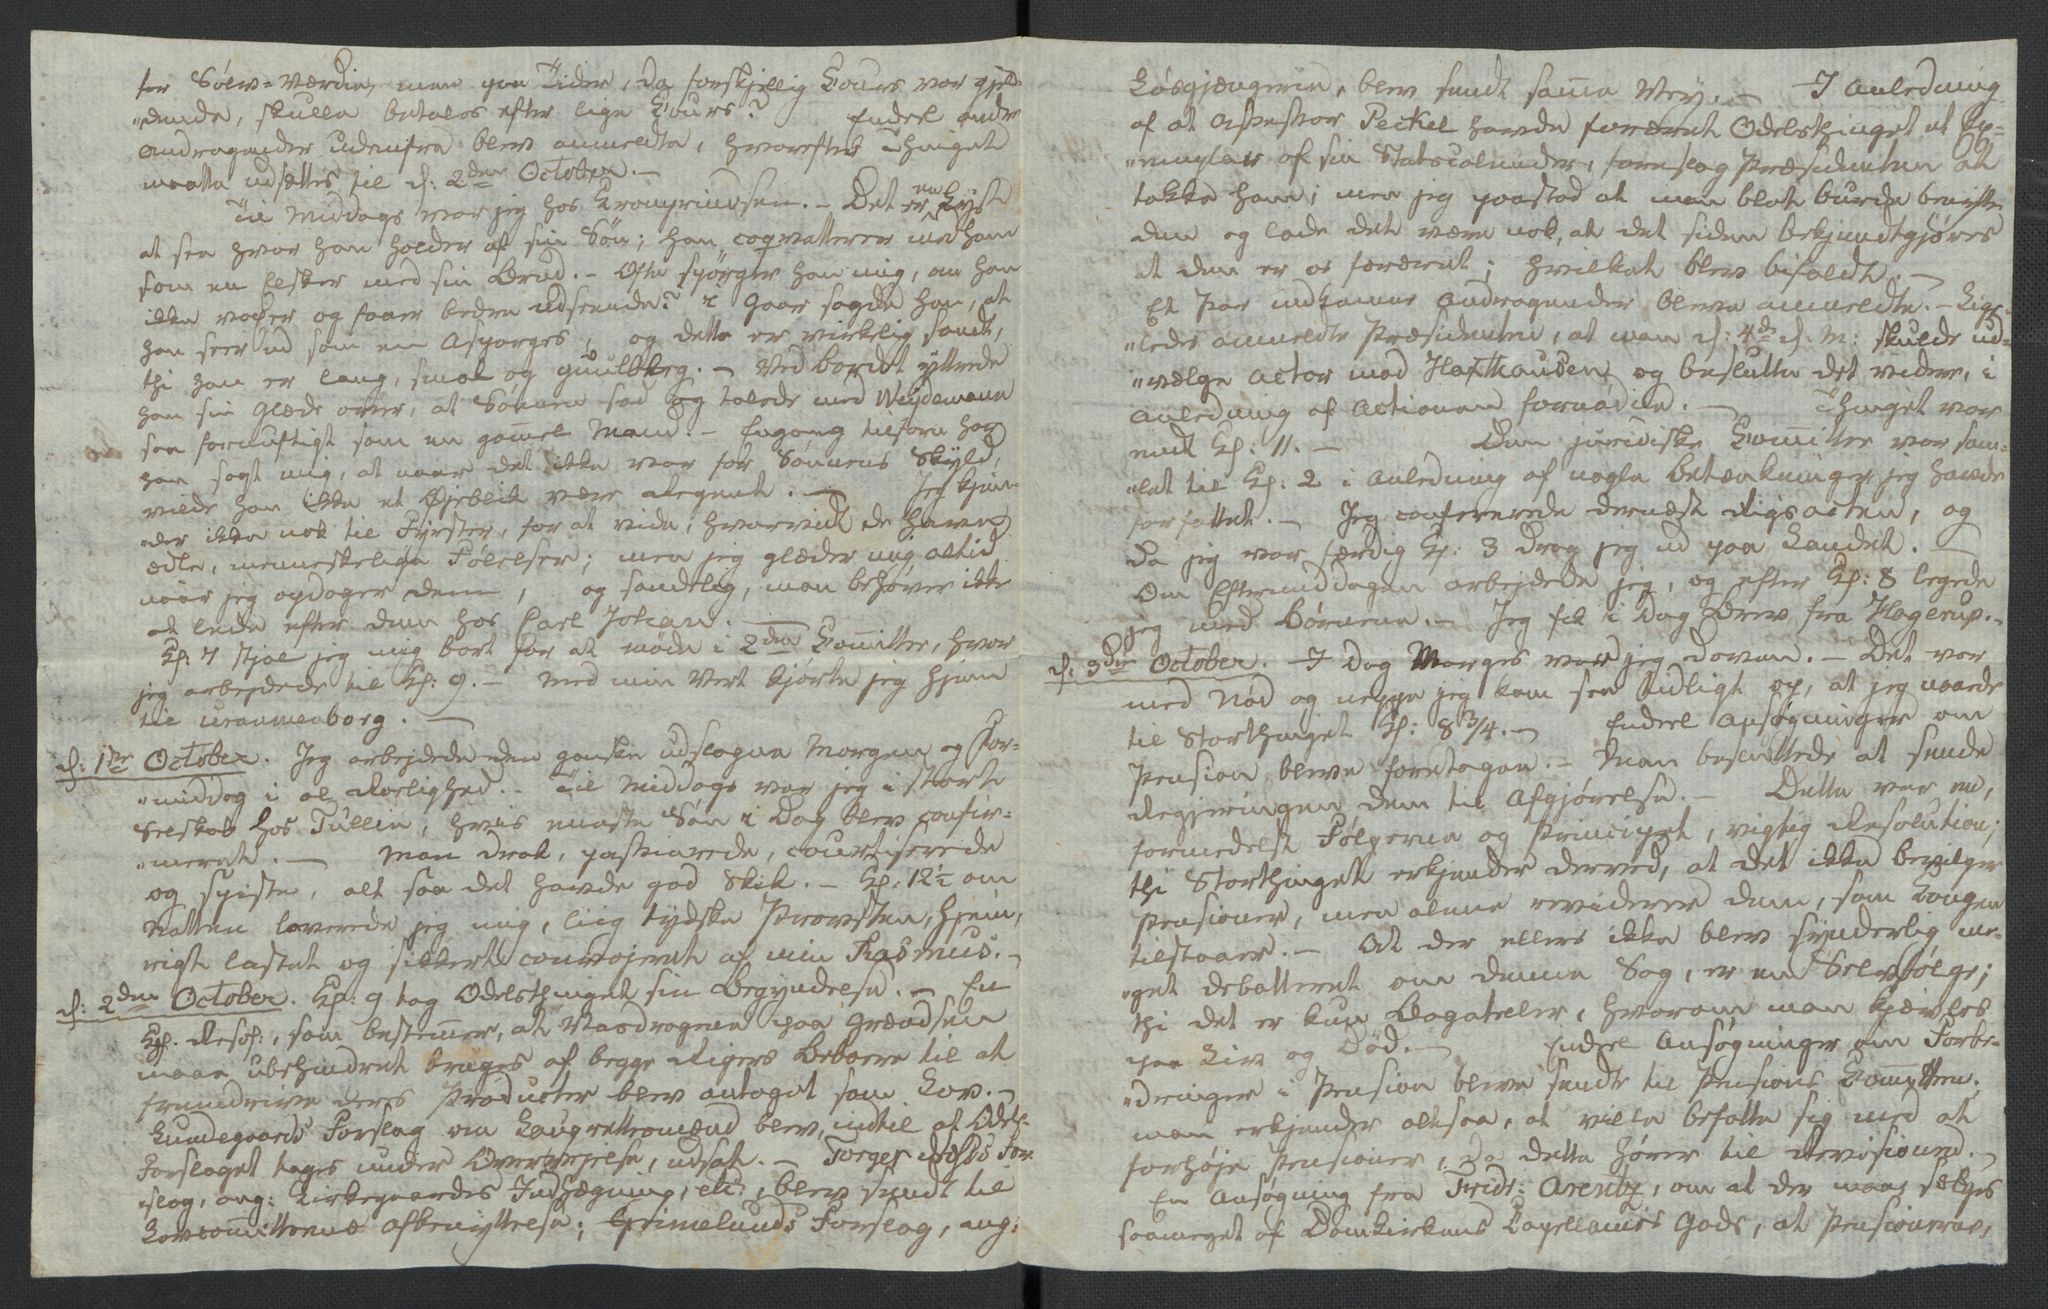 for Sølv-Værdie, men paa Tider, da forskjellig Cours var gjel-
"dende, skulle betales efter lige Cours? Endeel andre
Andragender udenfra blev anmeldte, hvorefter Thinget
maatte udsættes til d: 2den October. —
Til Middags var jeg hos Kronprindsen. — Det er en Lyst
at see hvor han holder af sin Søn; han coqvetterer med ham
som en Elsker med sin Brud. — Ofte spørger han mig, om han
ikke voxer og faaer bedre Udseende? I Gaar sagde han, at
han seer ud som en Asparges, og dette er virkelig sandt,
thi han er lang, smal og guulbleg. — Ved Bordet yttrede
han sin Glæde over, at Sønnen sad og talede med Weydemann
saa fornuftigt som en gam̄el Mand. — Engang tilforn har
han sagt mig, at naar det ikke var for Sønnens Skyld,
vilde han ikke et Øjeblik være Regent. — Jeg kjen-
"der ikke nok til Fyrster, for at vide, hvorvidt de have
ædle, menneskelige Følelser; men jeg glæder mig altid
naar jeg opdager dem, og sandelig, man behøver ikke
at lede efter dem hos Carl Johan. —
Kl: 7 stjal jeg mig bort for at møde i 2den Com̄ittee, hvor
jeg arbejdede til Kl: 9. — Med min Vert kjørte jeg hjem
til Uranienborg. —
d: 1ste October. Jeg arbejdede den ganske udslagne Morgen og For-
"middag i al Roelighed. — Til Middags var jeg i stort
Selskab hos Tullin, hvis eneste Søn i Dag blev confir-
"meret. — Man drak, passiarede, courtiserede
og spiste, alt saa det havde god Skik. — Kl: 12½ om
Natten laverede jeg mig, liig tydske Provsten, hjem,
rigt lastet og sikkert convojeret af min Rasmus. —
d: 2den October. Kl: 9 tog Odelsthinget sin Begyndelse. — En
Kgl. Resol:, som bestem̄er, at Vasdragene paa Grændsen
maae ubehindret bruges af begge Rigers Beboere til at
fremdrive deres Producter blev antaget som Lov. —
Lundegaards Forslag om Laugrettemænd blev, indtil at Odels-
Forslaget tages under Overvejelse, udsat. — Forslag,
slag, ang: Kirkegaardes Indhægning, etc, blev sendt til
Lovcom̄itteens Afbenyttelse; Grimelunds Forslag, ang:
Løsgjængerie, blev sendt sam̄e Vej. — I Anledning
af at Assessor Peckel havde foræret Odelsthinget et Ex-
"emplar af sin Statscalender, foreslog Præsidenten at
takke ham; men jeg paastod at man blot burde benytte
den og lade det være nok, at det siden bekjendtgjøres
at den er os foræret; hvilket blev bifaldt. —
Et Par indkomne Andragender bleve anmeldte. — Lige-
"ledes anmeldte Præsidenten, at man d: 4de d. M: skulde ud-
"vælge Actor mod Haxthausen og beslutte det videre, i
Anledning af Actionen fornødne. — Thinget var
endt Kl: 11. — Den juridiske Com̄ittee var sam-
"let til Kl: 2 i Anledning af nogle Betænkninger jeg havde
forfattet. — Jeg confererede dernæst Rigsacten, og
da jeg var færdig Kl: 3 drog jeg ud paa Landet. —
Om Eftermiddagen arbejdede jeg, og efter Kl: 8 legede
jeg med Børnene. — Jeg fik i Dag Brev fra Hagerup. —
d: 3die October. I Dag Morges var jeg doven. — Det var
med Nød og neppe jeg kom saa tidligt op, at jeg naaede
til Storthinget Kl: 8¾. — Endeel Ansøgninger om
Pension bleve foretagne. — Man besluttede at sende
Regjeringen dem til Afgjørelse. — Dette var en,
formedelst Følgerne og Principet, vigtig Resolution;
thi Storthinget erkjender derved, at det ikke bevilger
Pensioner, men alene reviderer dem, som Kongen
tilstaaer. — At der ellers ikke blev synderlig me-
"get debatteret om denne Sag, er en Selvfølge;
thi det er kun Bagateller, hvorom man kjævles
paa Liv og Død. — Endeel Ansøgninger om Forbe-
"dringer i Pension bleve sendte til Pensions Com̄itteen.
Man erkjender altsaa, at ville befatte sig med at
forhøje Pensioner, da dette hører til Revisionen. —
En Ansøgning fra Fridr: Arentz, om at der maae sælges
saameget af Domkirkens Capellanies Gods, at Pensionerne,